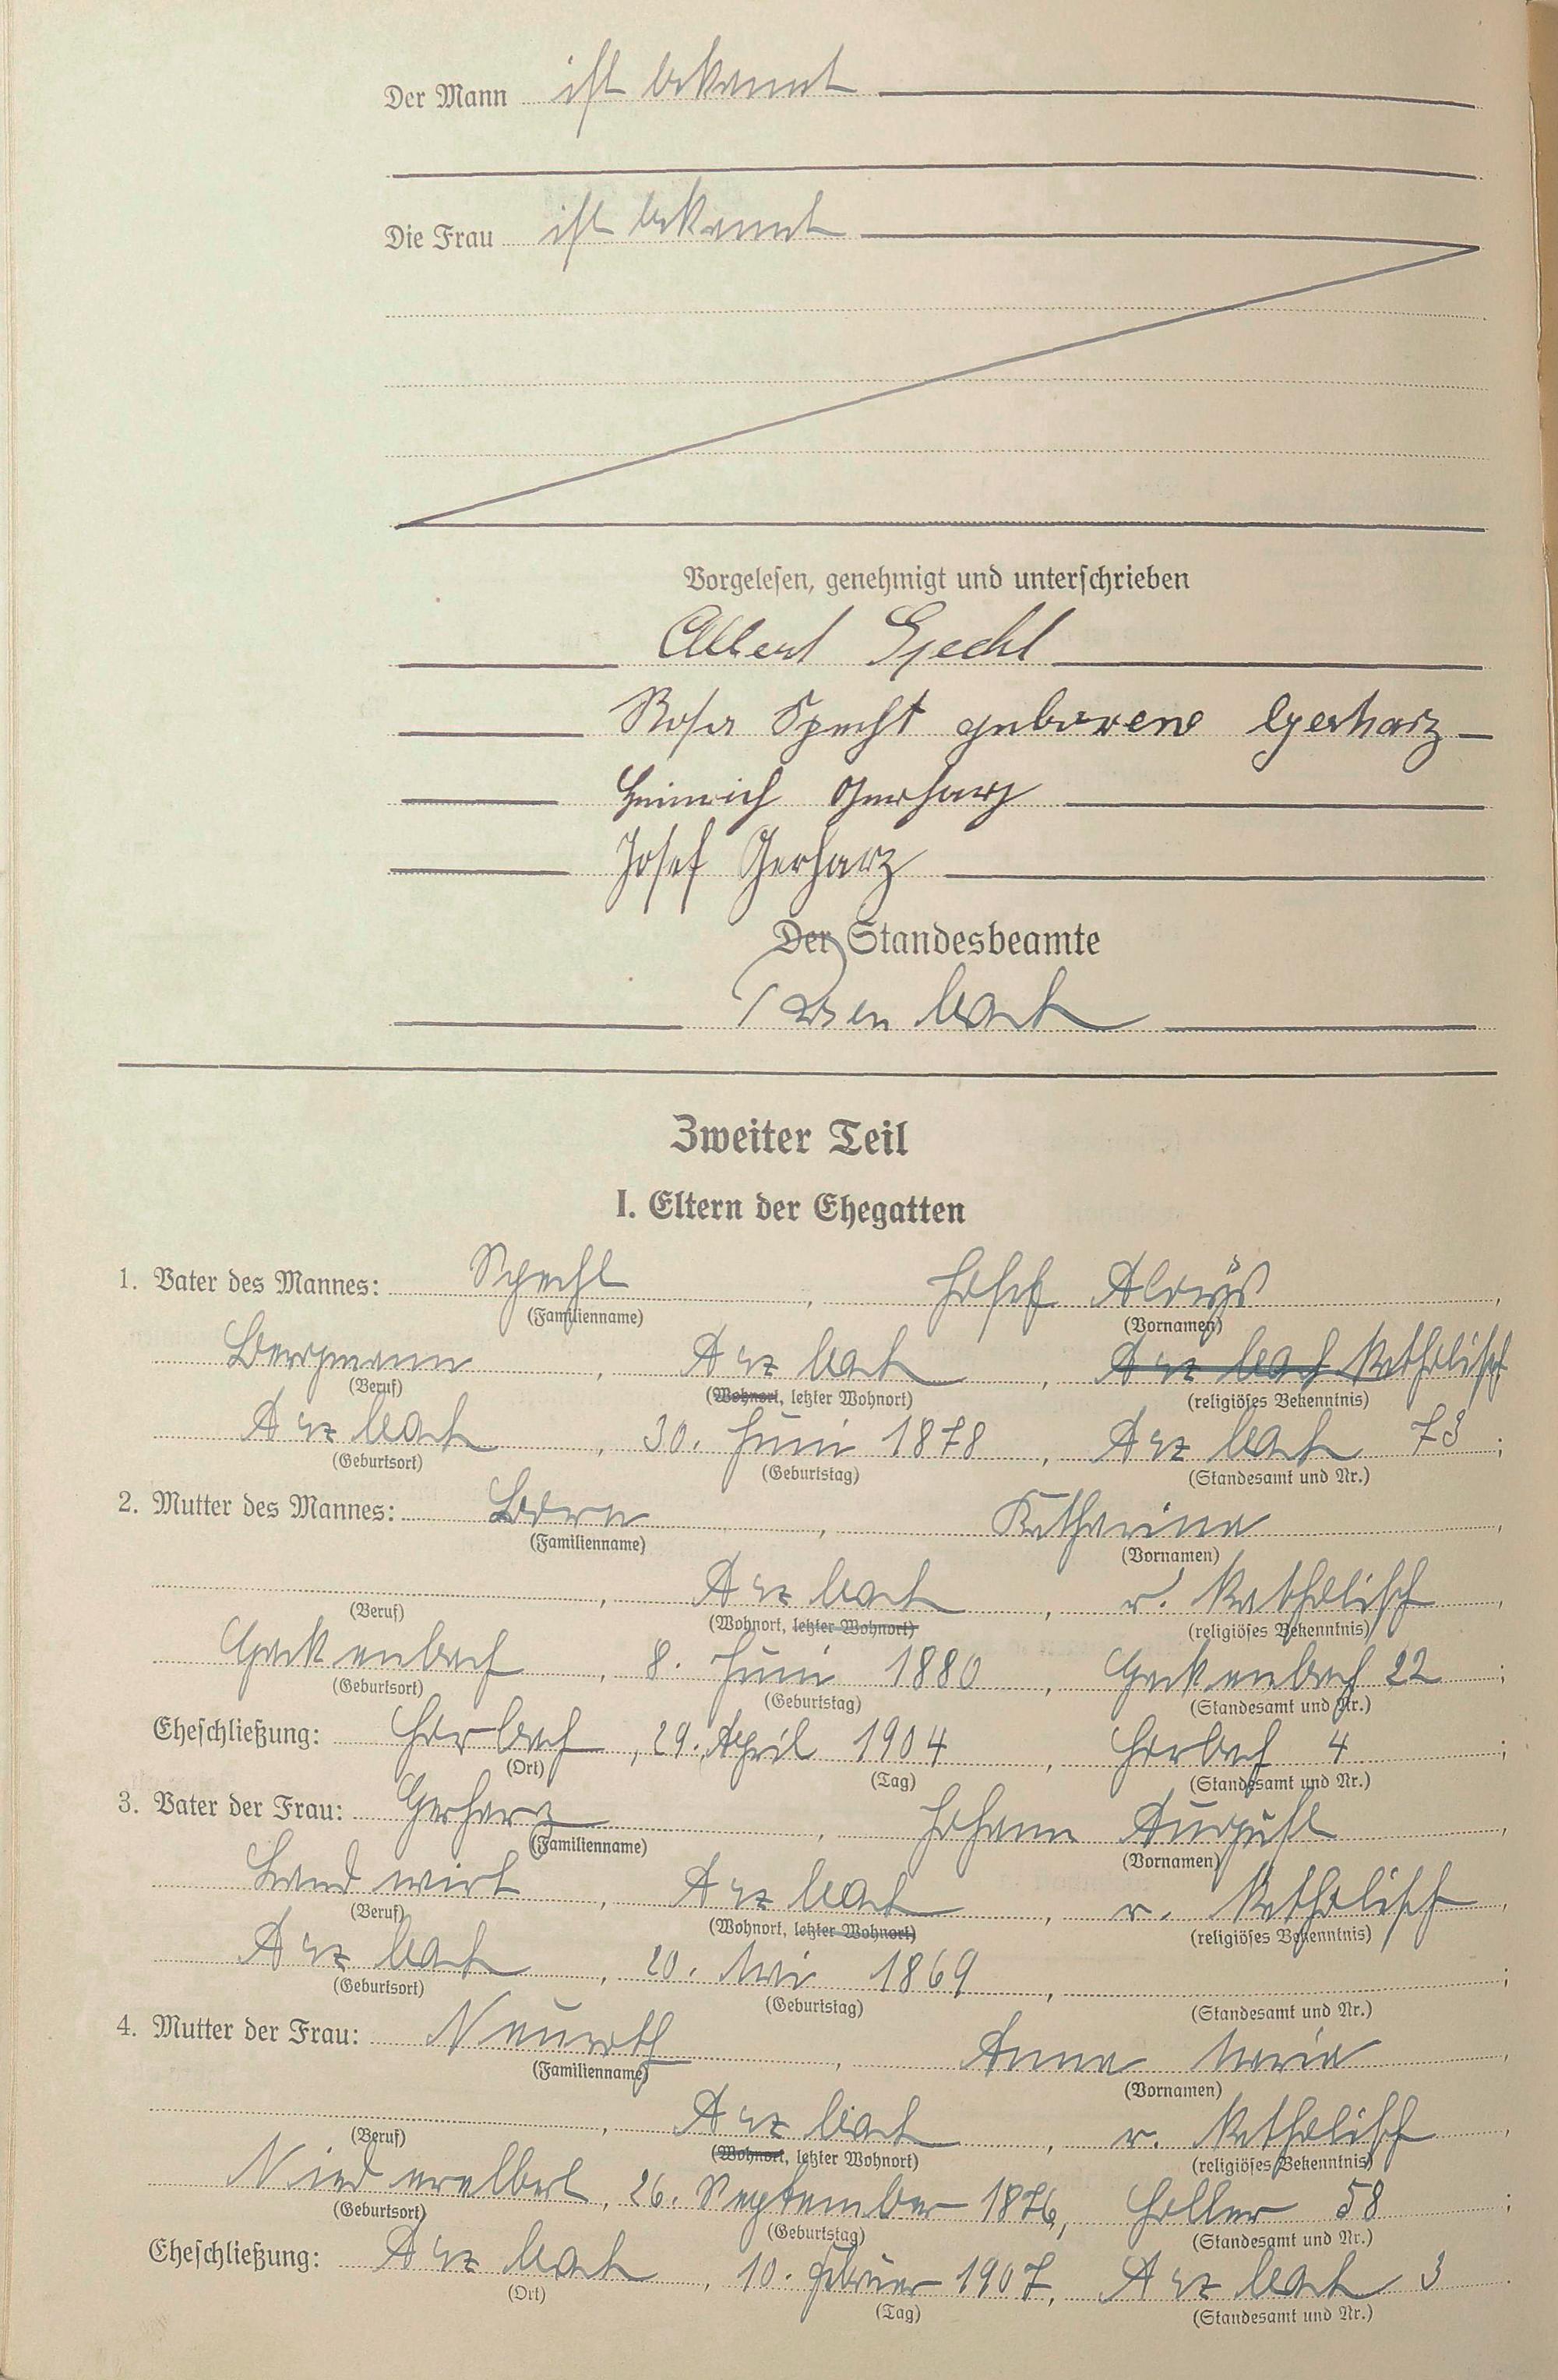 Der Mann ist bekannt
Die Frau ist bekannt
Vorgelesen, genehmigt und unterschrieben
Albert Specht
Rosa Specht geborene Gerharz
Heinrich Gerharz
Josef Gerharz
Der Standesbeamte
Zweiter Teil
I. Eltern der Ehegatten
1. Vater des Mannes: Specht, Josef Aloys,
(Familienname) (Vornamen)
Bergmann, Arzbach, Arzbach katholisch
(Beruf) (Wohnort, letzter Wohnort) (religiöses Bekenntnis)
Arzbach, 30. Juni 1878, Arzbach 73;
(Geburtsort) (Geburtstag) (Standesamt und Nr.)
2. Mutter des Mannes: Born, Katharina,
(Familienname) (Vornamen)
, Arzbach, r. katholisch,
(Beruf) (Wohnort, letzter Wohnort) (religiöses Bekenntnis)
Gackenbach, 8. Juni 1880, Gackenbach 22;
(Geburtsort) (Geburtstag) (Standesamt und Nr.)
Eheschließung: Horbach, 29. April 1904, Horbach 4;
(Ort) (Tag) (Standesamt und Nr.)
3. Vater der Frau: Gerharz, Johann August,
(Familienname) (Vornamen)
Landwirt, Arzbach, r. katholisch,
(Beruf) (Wohnort, letzter Wohnort) (religiöses Bekenntnis)
Arzbach, 20. Mai 1869, ;
(Geburtsort) (Geburtstag) (Standesamt und Nr.)
4. Mutter der Frau: Neuroth, Anna Maria,
(Familienname) (Vornamen)
, Arzbach, r. katholisch,
(Beruf) (Wohnort, letzter Wohnort) (religiöses Bekenntnis)
Niederelbert, 26. September 1876, Holler 58;
(Geburtsort) (Geburtstag) (Standesamt und Nr.)
Eheschließung: Arzbach, 10. Februar 1907, Arzbach 3.
(Ort) (Tag) (Standesamt und Nr.)